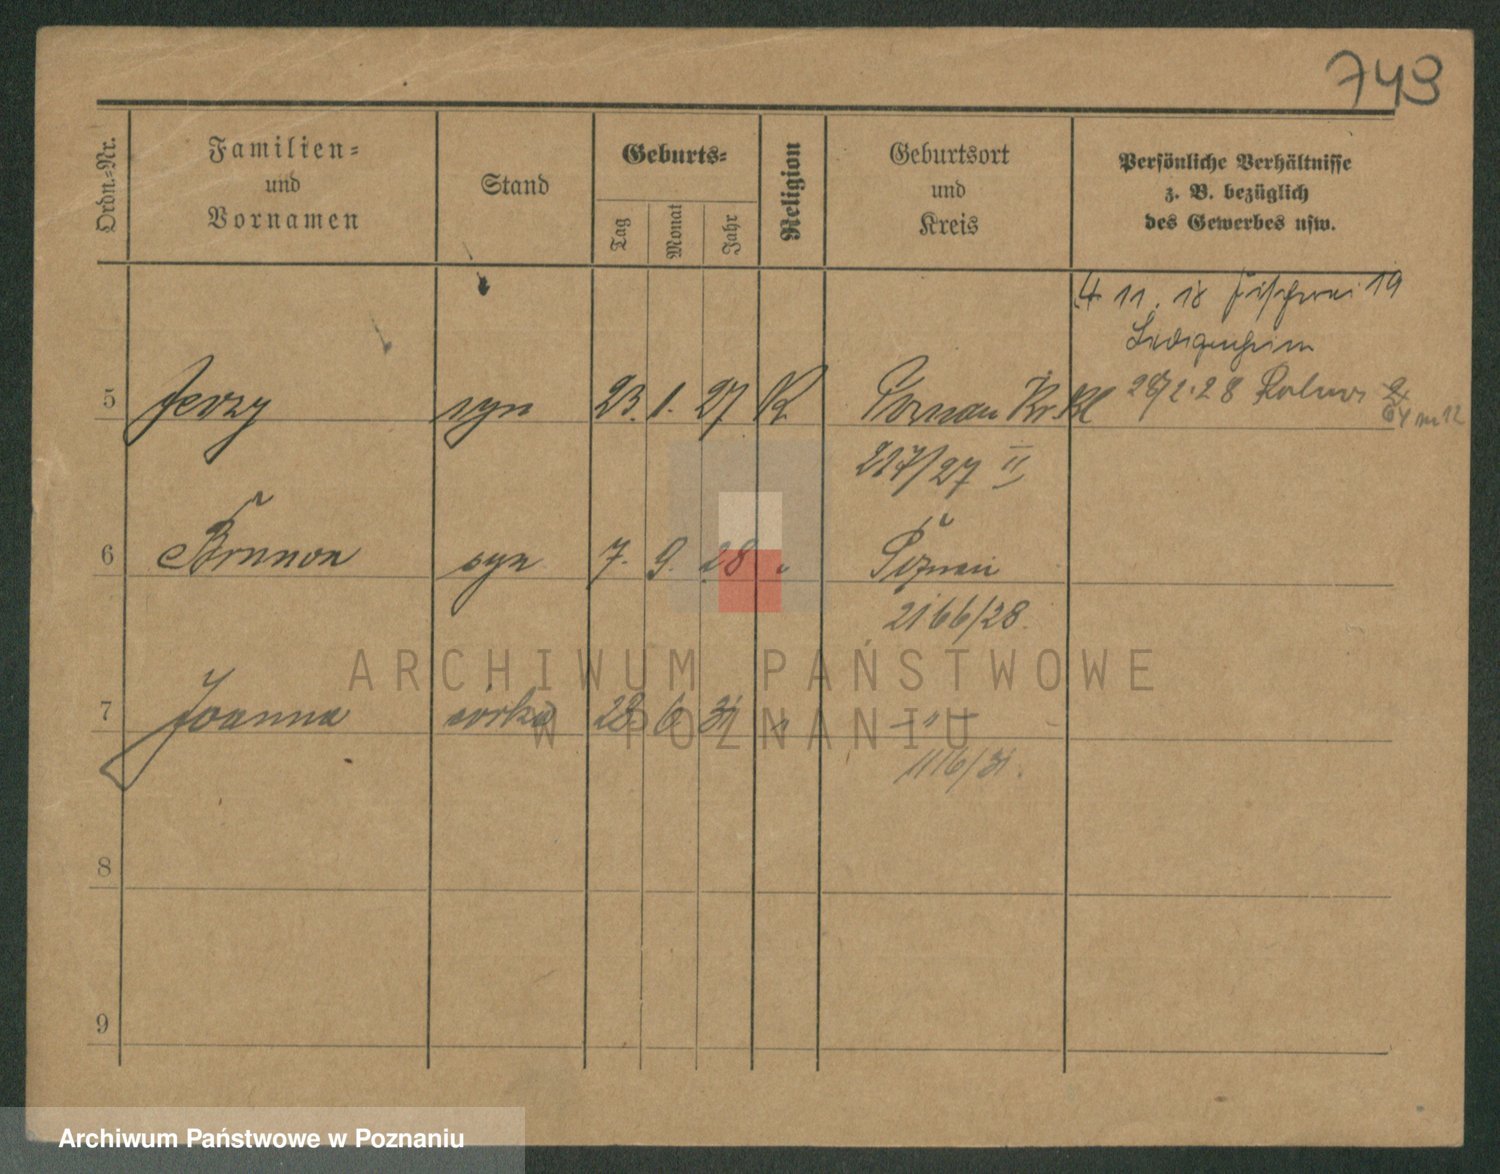 743
Ordn.-Nr.
Familien-
und
Vornamen
Stand
Geburts-
Tag
Monat
Jahr
Religion
Geburtsort
und
Kreis
Persönliche Verhältnisse
z. B. bezüglich
des Gewerbes usw.
4 11. 18 19
Ledigenheim
5 Jerzy syn 23. 1. 27 K Poznan Kr. 2.28
nr 12
217/27 II
6 Brunon syn 7. 9. 28 " Poznań
2166/28.
7 Joanna córka 23 6 31 " - " -
1116/31.
8
9
ARCHIWUM PAŃSTWOWE
W POZNANIU
Archiwum Państwowe w Poznaniu